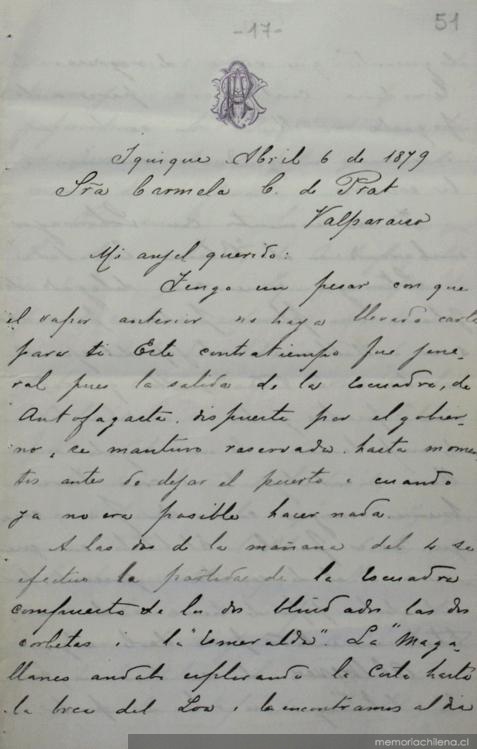 -17-
51
Iquique Abril 6 de 1879
Sra Carmela C. de Prat
Valparaiso
Mi anjel querido:
Tengo un pesar con que
el vapor anterior no haya llevado carta
para ti. Este contratiempo fue jene-
ral pues la salida de la escuadra, de
Antofagasta, dispuesta por el gobier-
no, se mantuvo reservada hasta momen
tos antes de dejar el puerto i cuando
ya no era posible hacer nada.
A las dos de la mañana del 4 se
efectuó la partida de la Escuadra
compuesta de los dos blindados las dos
corbetas i la "Esmeralda". La "Maga-
llanes andaba esplorando la Costa hasta
la boca del Loa i la encontramos al dia
memoriachilena.cl